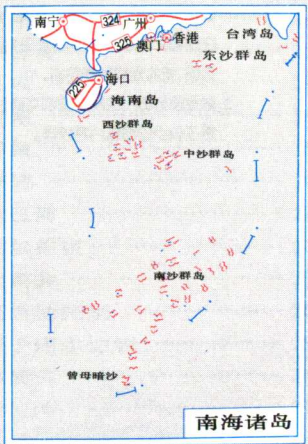 南宁
324
广州
台湾岛
325
澳门
香港
东沙群岛
225
海口
海南岛
西沙群岛
中沙群岛
南沙群岛
曾母暗沙
南海诸岛